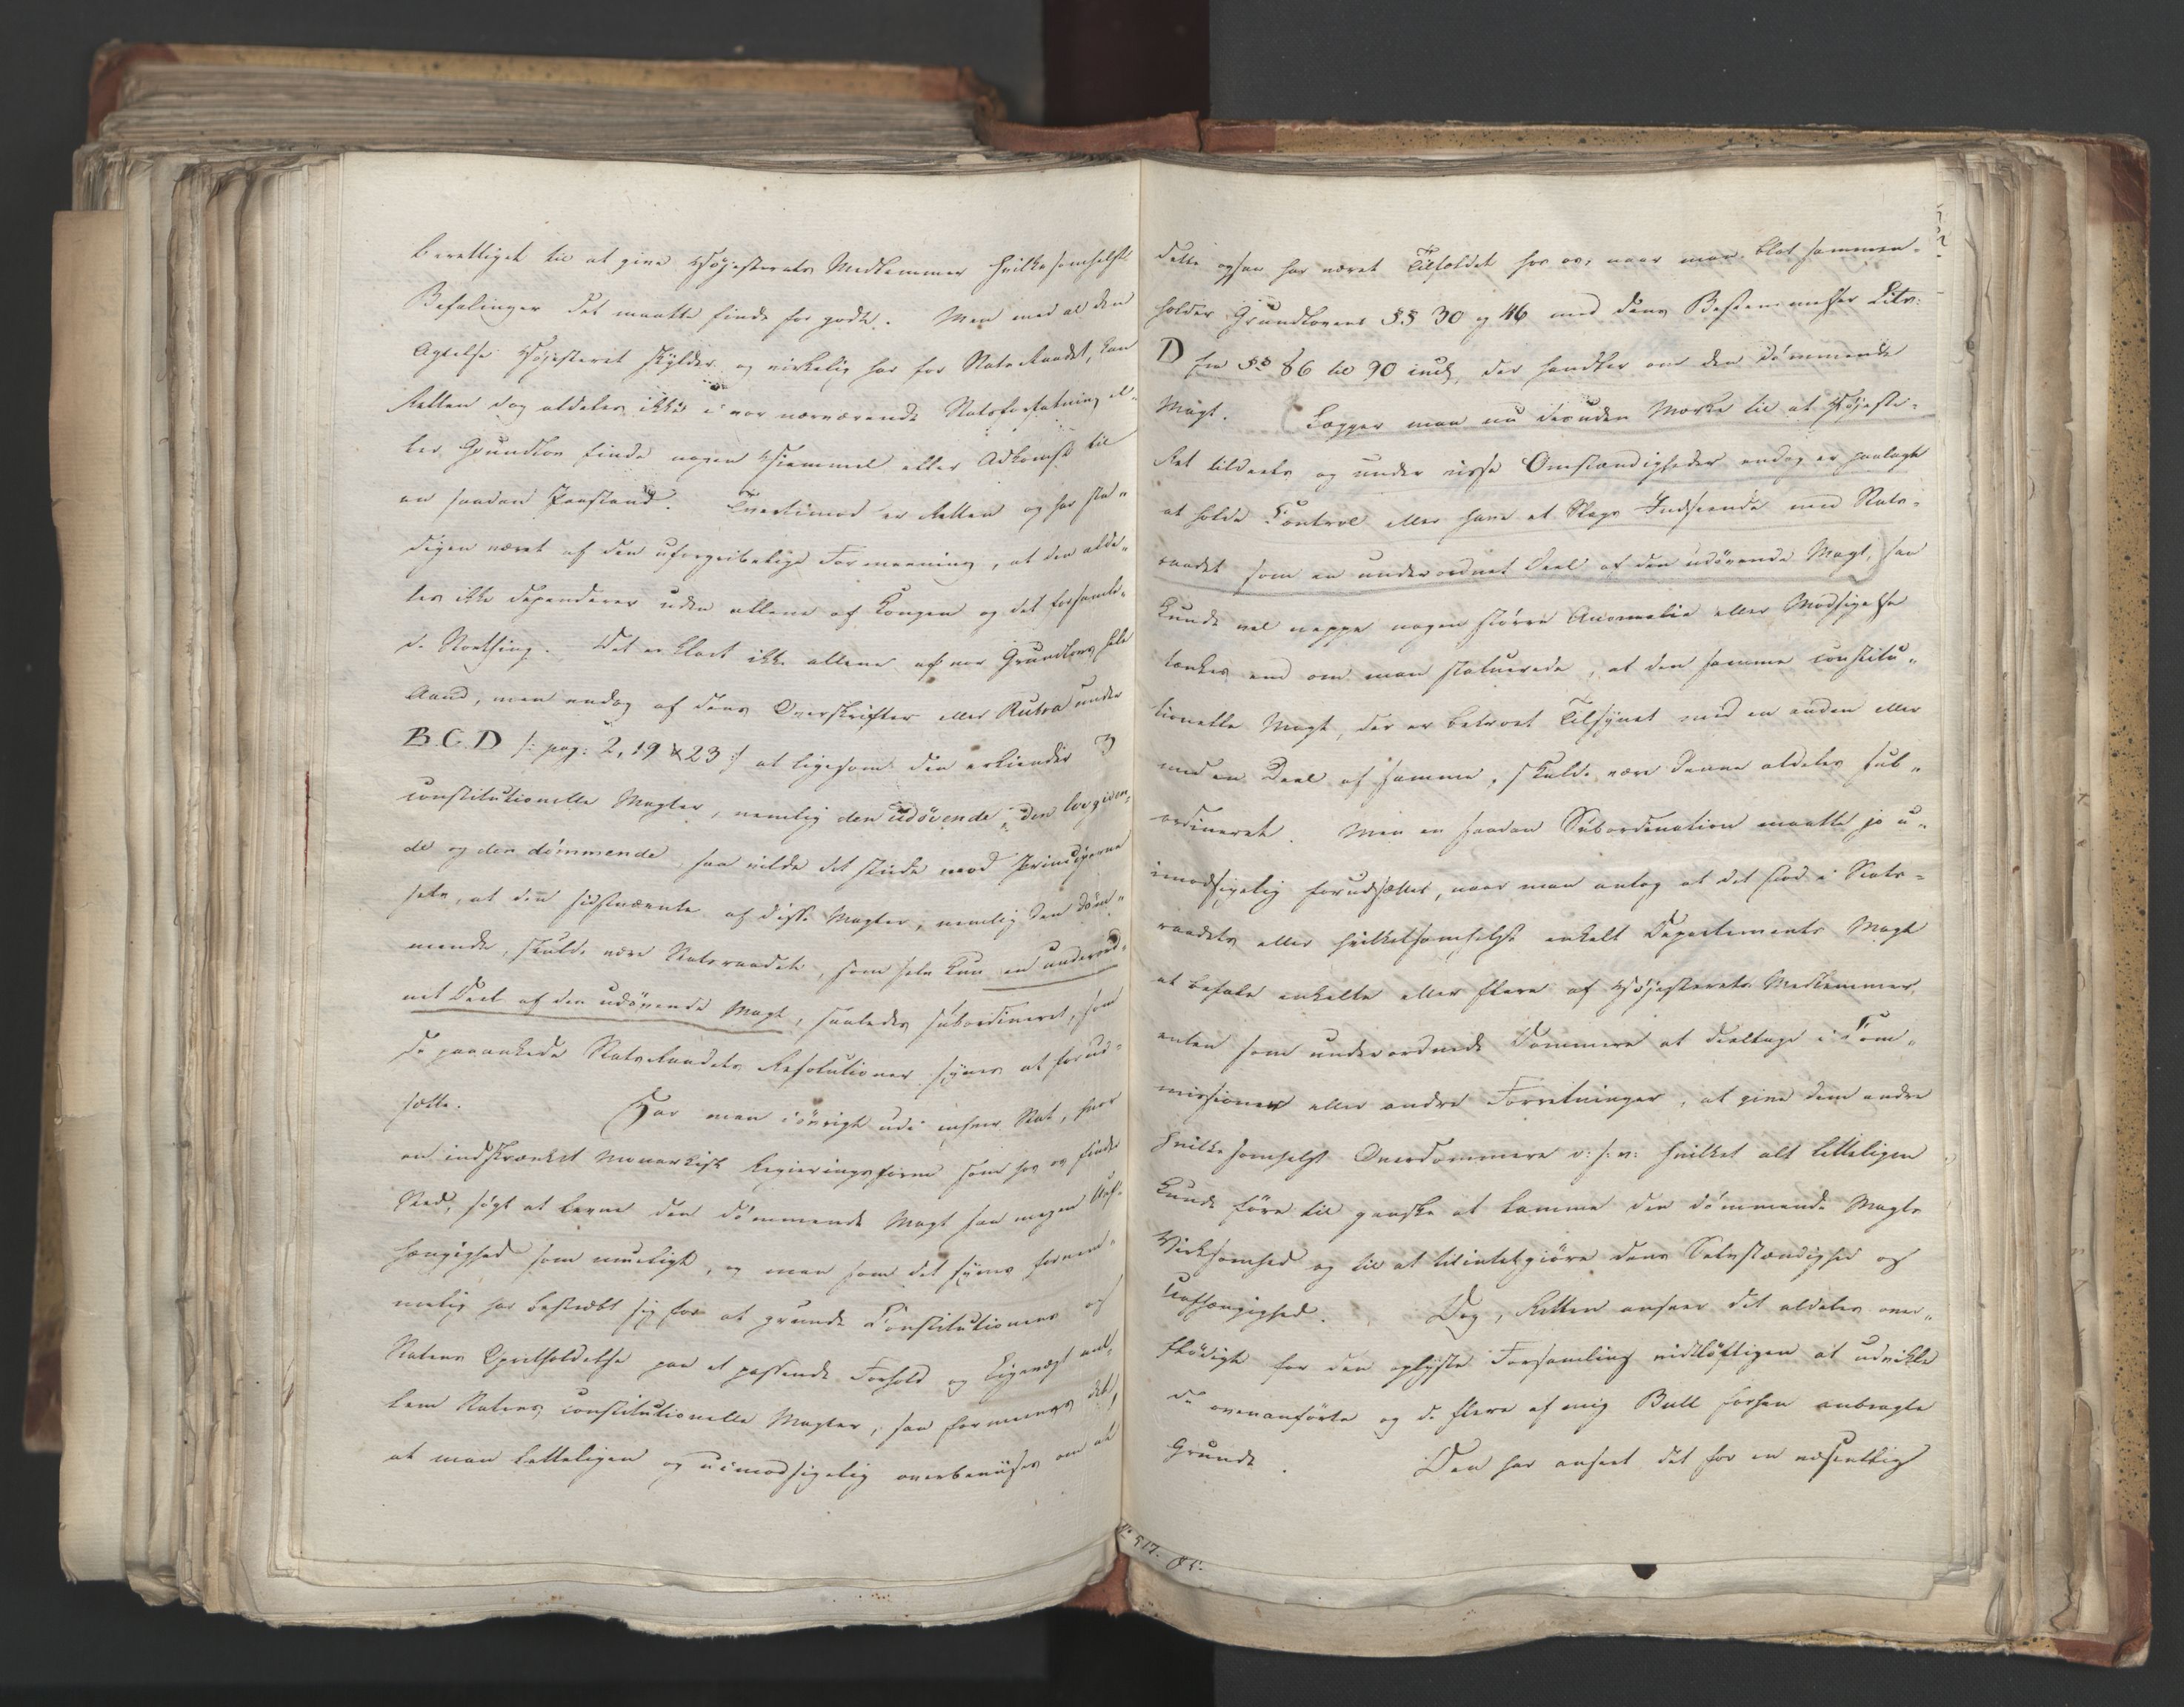 berettiget til at give Højesterets Medlemmer hvilkesomhelst
Befalinger det maatte finde for godt. Men med al den
Agtelse Højesteret skylder og virkelig har for StatsRaadet, kan
Retten dog aldeles ikke i vor nærværende Statsforfatning el-
ler Grundlov finde nogen Hiemmel eller Adkomst til
en saadan Paastand. Tvertimod er Retten og har sta-
digen været af den uforgribelige Formening, at den alde-
les ikke dependerer uden allene af Kongen og det forsamle-
de Storthing. Det er klart ikke allene af vor Grundlovs hele
Aand, men endog af dens Overskrifter eller Rubra under
B. C. D /: pag: 2, 19 & 23 :/ at ligesom den erkiender 3
constitutionelle Magter, nemlig den udøvende, den lovgiven-
de og den dømmende, saa vilde det stride mod Principerne
selv, at den sidstnævnte af disse Magter, nemlig den døm-
mende, skulde være Statsraadet, som selv kun en underord-
net Deel af den udøvende Magt, saaledes subordineret, som
de paaankede StatsRaadets Resolutioner synes at forud-
sætte. Har man iøvrigt udi enhver Stat, hvor
en indskrænket monarkisk Regieringsform som hos os finder
Sted, søgt at levne den dømmende Magt saa megen Uaf-
hængighed som mueligt, og man som det synes fornem-
melig har bestræbt sig for at grunde Constitutionens og
Statens Opretholdelse paa et passende Forhold og Ligevægt mel-
lem Statens constitutionelle Magter, saa formenes det,
at man letteligen og uimodsigelig overbevises om at
dette ogsaa har været Tilfældet hos os, naar man blot sammen-
holder Grundlovens §§ 30 og 46 med dens Bestemmelser Litr:
D fra §§ 86 til 90 incl, der handler om den dømmende
Magt. Lægger man nu desuden Mærke til at Høieste-
Ret tildeels og under visse Omstændigheder endog er paalagt
at holde Control eller have et Slags Indseende med Stats-
raadet som en underordnet Deel af den udøvende Magt, saa
kunde vel neppe nogen større Anomalie eller Modsigelse
tænkes end om man statuerede, at den samme constitu-
tionelle Magt, der er betroet Tilsynet med en anden eller
med en Deel af samme, skulde være denne aldeles sub-
ordineret. Men en saadan Subordination maatte jo u-
imodsigelig forudsættes, naar man antog at det stod i Stats-
raadets eller hvilketsomhelst enkelt Departements Magt
at befale enkelte eller flere af Højesterets Medlemmer,
enten som underordnede Dommere at deeltage i Com-
missioner eller andre Forretninger, at give dem andre
hvilkesomhelst Overdommere o: s: v: hvilket alt letteligen
kunde føre til ganske at lamme den dømmende Magts
Virksomhed og til at tilintetgiøre dens Selvstændighed og
Uafhængighed. Dog, Retten anseer det aldeles over-
flødigt for den oplyste Forsamling vidtløftigen at udvikle
de ovenanførte og de flere af mig Bull forhen anbragte
Grunde. Den har anseet det for en væsentlig
No 517. 85.